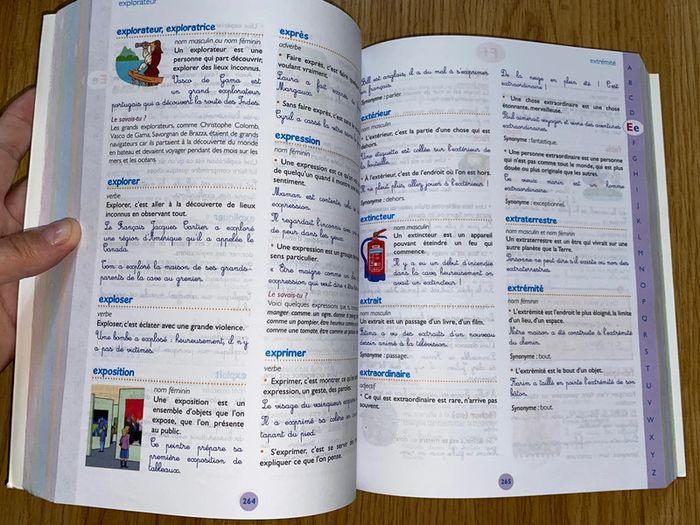 explorateur
explorateur, exploratrice
nom masculin ou nom féminin
Un explorateur est une
personne qui part découvrir,
explorer des lieux inconnus.
Vasco de Gama est
un grand explorateur
portugais qui a découvert la route des Indes.
Le savais-tu ?
Les grands explorateurs, comme Christophe Colomb,
Vasco de Gama, Savorgnan de Brazza, étaient de grands
navigateurs car ils partaient à la découverte du monde
en bateau et devaient voyager pendant des mois sur les
mers et les océans.
explorer
verbe
Explorer, c'est aller à la découverte de lieux
inconnus en observant tout.
Le Français Jacques Cartier a exploré
une région d'Amérique qu'il a appelée le
Canada.
Tom a exploré la maison de ses grands-
parents de la cave au grenier.
exploser
verbe
Exploser, c'est éclater avec une grande violence.
Une bombe a explosé : heureusement, il n'y
a pas de victimes.
exposition
nom féminin
Une exposition est un
ensemble d'objets que l'on
expose, que l'on présente
au public.
Ce peintre prépare sa
première exposition de
tableaux.
exprès
adverbe
• Faire exprès, c'est faire
voulant vraiment.
Laura a fait exprès
Margaux.
• Sans faire exprès, c'est sans le
Cyril a cassé la
expression
nom féminin
• Une expression est ce qu
de quelqu'un quand il montre
sentiment.
Maman est contente,
expression.
Il regardait l'inconnu
de peur dans les yeux.
• Une expression est un groupe
sens particulier.
« Être maigre comme un
expression qui veut dire «
Le savais-tu ?
Voici quelques expressions que
manger comme un ogre, dormir
comme un pompier, être heureux comme
comme une tomate, être fort comme
exprimer
verbe
• Exprimer, c'est montrer ce
expression, un geste, des paroles.
Le visage du vainqueur
Il a exprimé sa colère en
tapant du pied.
• S'exprimer, c'est se servir de
expliquer ce que l'on pense.
264
extrémité
Bill est anglais, il a du mal à s'exprimer
en français.
Synonyme : parler.
extérieur
nom masculin
• L'extérieur, c'est la partie d'une chose qui est
dehors.
Une étiquette est collée sur l'extérieur de
la bouteille.
• À l'extérieur, c'est de l'endroit où l'on est hors.
Il ne pleut plus, allez jouer à l'extérieur !
Synonyme : dehors.
extincteur
nom masculin
Un extincteur est un appareil
pouvant éteindre un feu qui
commence.
Il y a eu un début d'incendie
dans la cave, heureusement on
avait un extincteur !
extrait
nom masculin
Un extrait est un passage d'un livre, d'un film.
a vu des extraits d'un nouveau
dessin animé à la télévision.
Synonyme : passage.
extraordinaire
adjectif
• Ce qui est extraordinaire est rare, n'arrive pas
souvent.
De la neige en plein été ! C'est
extraordinaire !
• Une chose extraordinaire est une chose
étonnante, merveilleuse.
Paul aimerait voyager et vivre des aventures
extraordinaires.
Synonyme : fantastique.
• Une personne extraordinaire est une personne
qui n'est pas comme tout le monde, qui est plus
douée ou plus originale que les autres.
Ce vieux marin est un homme
extraordinaire.
Synonyme : exceptionnel.
extraterrestre
nom masculin et nom féminin
Un extraterrestre est un être qui vivrait sur une
autre planète que la Terre.
Personne ne peut dire s'il existe ou non des
extraterrestres.
extrémité
nom féminin
• L'extrémité est l'endroit le plus éloigné, la limite
d'un lieu, d'un espace.
Notre maison a été construite à l'extrémité
du chemin.
Synonyme : bout.
• L'extrémité est le bout d'un objet.
Karim a taillé en pointe l'extrémité de son
bâton.
Synonyme : bout.
265
A
B
C
D
Ee
F
G
H
I
J
K
L
M
N
O
P
Q
R
S
T
U
V
W
X
Y
Z